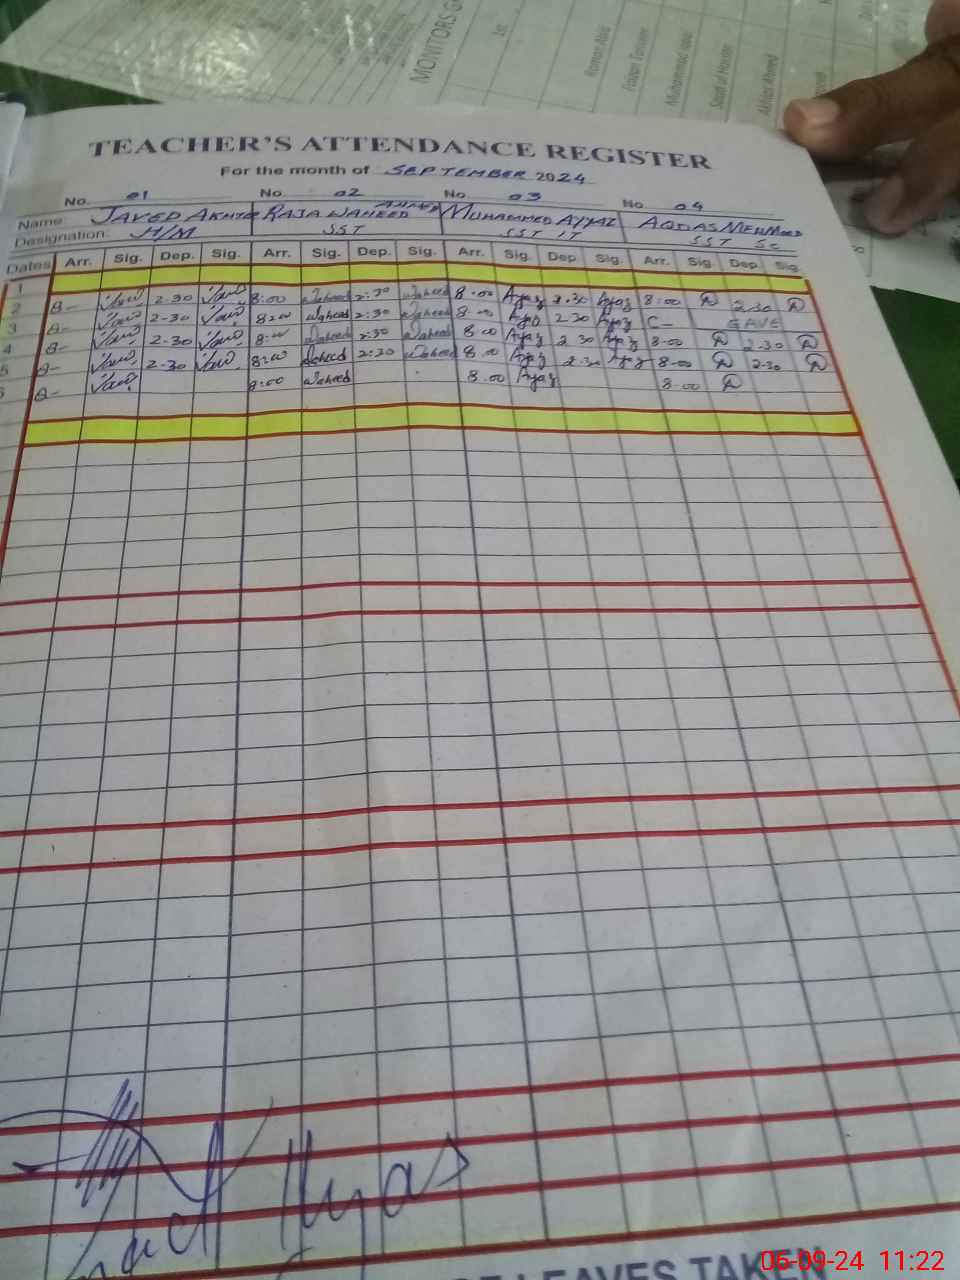 MONITORS
1st
Roman Abid
Faizan Tanveer
Akhtar Ahmed
TEACHER'S ATTENDANCE REGISTER
For the month of SEPTEMBER 2024
No. 01 No 02 No. 03 No 04
Name: JAVED AKHTAR RAJA WAHEED AHMED MUHAMMED AYYAZ AQDAS MEHMOOD
Designation: H/M SST SST IT SST Sc
Dates Arr. Sig. Dep. Sig. Arr. Sig. Dep. Sig. Arr. Sig. Dep Sig. Arr. Sig Dep Sig
1
2 8- 2-30 8:00 Waheed 2:30 Waheed 8.00 Ayaz 2.30 Ayaz 8:00 2.30
3 8- 2-30 8:00 Waheed 2:30 Waheed 8.00 Ayaz 2.30 Ayaz C- LEAVE
4 8- 2-30 8:00 Waheed 2:30 Waheed 8.00 Ayaz 2.30 Ayaz 8-00 2-30
5 8- 2-30 8:00 Waheed 2:30 Waheed 8.00 Ayaz 2.30 Ayaz 8-00 2-30
6 8- 8:00 Waheed 8.00 Ayaz 8-00
Ilyas
LEAVES TAKEN
06-09-24 11:22